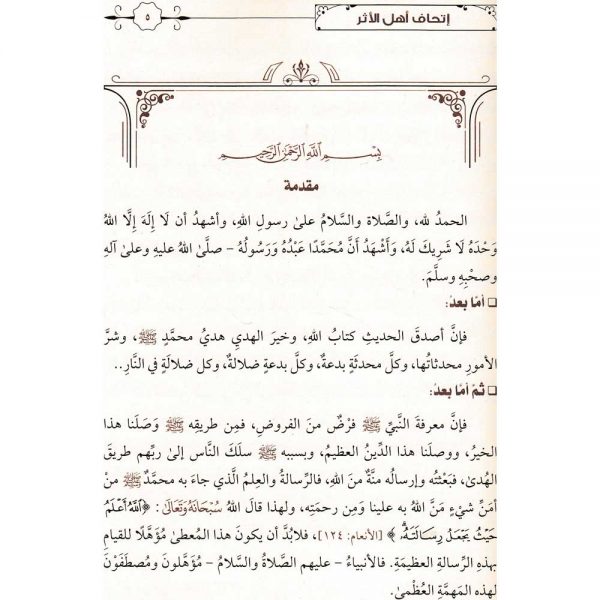 إتحاف أهل الأثر
٥
بِسْمِ اللَّهِ الرَّحْمَنِ الرَّحِيمِ
مقدمة
الحمدُ لله، والصَّلاة والسَّلامُ علىٰ رسولِ اللهِ، وأشهدُ أن لَا إِلَهَ إِلَّا اللهُ
وَحْدَهُ لَا شَرِيكَ لَهُ، وَأَشْهَدُ أَنَّ مُحَمَّدًا عَبْدُهُ وَرَسُولُهُ – صلَّىٰ اللهُ عليهِ وعلىٰ آلهِ
وصحْبِهِ وسلَّمَ.
❑ أمَّا بعدُ:
فإنَّ أصدقَ الحديثِ كتابُ اللهِ، وخيرَ الهديِ هديُ محمَّدٍ ﷺ، وشرَّ
الأمورِ محدثاتُها، وكلَّ محدثَةٍ بدعةٌ، وكلَّ بدعةٍ ضلالةٌ، وكل ضلالةٍ في النَّارِ..
❑ ثمَّ أمَّا بعدُ:
فإنَّ معرفةَ النَّبيِّ ﷺ فرْضٌ منَ الفروضِ، فمِن طريقِه ﷺ وَصَلَنا هذا
الخيرُ، ووصلَنا هذا الدِّينُ العظيمُ، وبسببه ﷺ سلَكَ النَّاس إلىٰ ربِّهم طريقَ
الهُدىٰ، فبَعْثتُه وإرسالُه منَّةٌ منَ اللهِ، فالرِّسالةُ والعِلمُ الَّذي جاءَ به محمدٌ ﷺ من
أمَنِّ شيءٍ مَنَّ اللهُ به علينا ومِن رحمتِه، ولهذا قالَ اللهُ سُبْحَانَهُ وَتَعَالَىٰ: ﴿ٱللَّهُ أَعْلَمُ
حَيْثُ يَجْعَلُ رِسَالَتَهُۥ﴾ [الأنعام: ١٢٤]، فلابُدَّ أن يكونَ هذا المُعطىٰ مُؤَهَّلًا للقيامِ
بهذه الرِّسالةِ العظيمَةِ. فالأنبياءُ – عليهم الصَّلاةُ والسَّلامُ – مُؤَهَّلونَ ومُصطَفَوْنَ
لهذه المَهمَّةِ العُظْمىٰ.